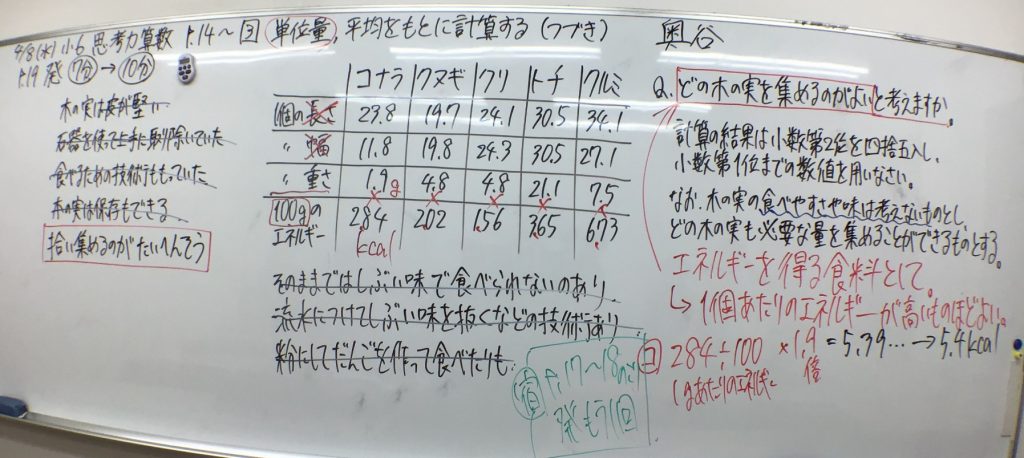 4/8(水) 小6 思考力算数 P.14〜 回 単位量, 平均をもとに計算する (つづき) 奥谷
P.19 発 7分→10分
木の実は殻が堅い
石器を使って上手に取り除いていた
食べるための技術をもっていた
木の実は保存もできる
拾い集めるのがたいへんそう
コナラ クヌギ クリ トチ クルミ
1個の長さ 23.8 19.7 24.1 30.5 34.1
〃 幅 11.8 19.8 24.3 30.5 27.1
〃 重さ 1.9g 4.8 4.8 21.1 7.5
100gの
エネルギー 284 202 156 365 673
kcal
そのままではしぶい味で食べられないのあり
流水につけてしぶい味を抜くなどの技術あり
粉にしてだんごを作って食べたりも
宿 P.17〜18
発もう1回
Q. どの木の実を集めるのがよいと考えますか。
計算の結果は小数第2位を四捨五入し、
小数第1位までの数値を用いなさい。
なお、木の実の食べやすさや味は考えないものとし
どの木の実も必要な量を集めることができるものとする。
エネルギーを得る食料として。
↳ 1個あたりのエネルギーが高いものほどよい。
回 284÷100 ×1.9 = 5.39… → 5.4kcal
1gあたりのエネルギー 倍